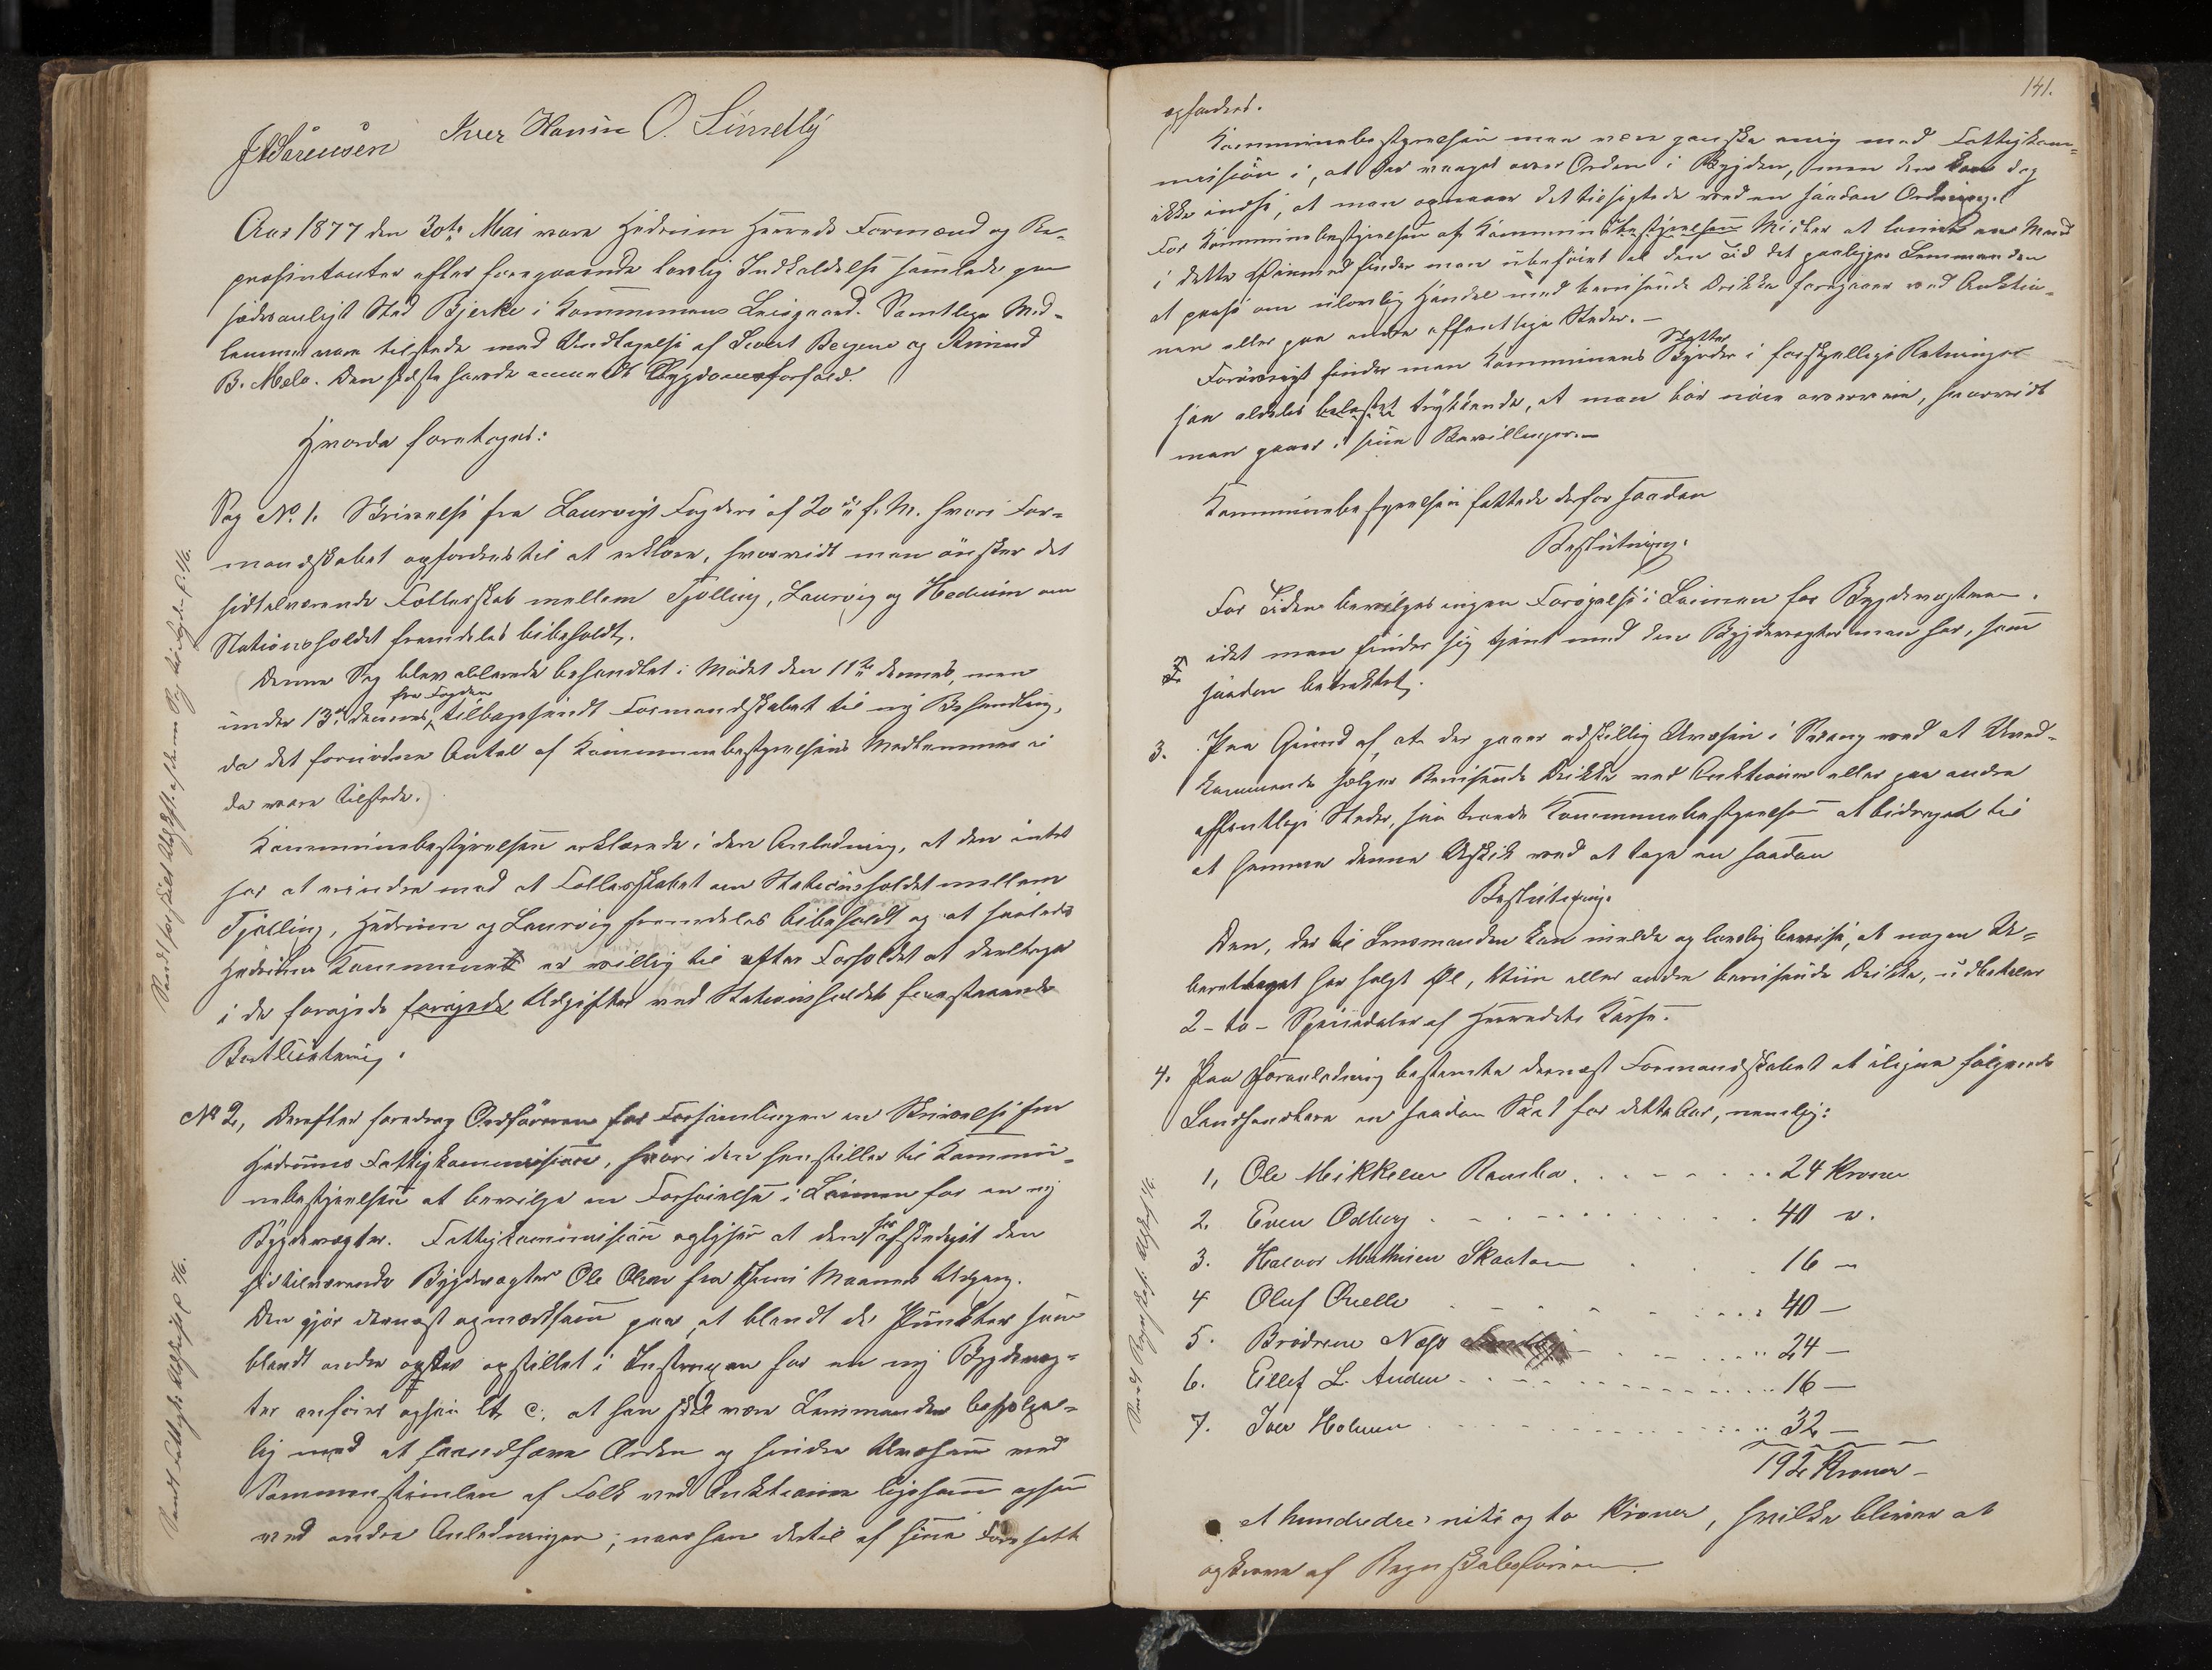 J A Sørensen Iver Hanson O. Sundby
Aar 1877 den 30te Mai vare Hedrum Herreds Formænd og Re-
præsentanter efter foregaaende lovlig Indkaldelse samlede paa
sædvanligt Sted Bjerke i Kommunens Leiegaard. Samtlige Med-
lemmer vare tilstede med Undtagelse af Sivert Bergene og Amund
B. Mælo. Den sidste havde anmeldt Sygdomsforfald.
Hvorda foretoges:
Sag No. 1. Skrivelse fra Laurvigs Fogderi af 20de f. M. hvori For-
mandskabet opfordres til at erklære, hvorvidt man ønsker det
hidtilværende Fællesskab mellem Tjølling, Laurvig og Hedrum om
Stationsholdet fremdeles bibeholdt.
(Denne Sag blev allerede behandlet i Mødet den 11te dennes, men
under 13de dennes, fra Fogden tilbagesendt Formandskabet til ny Behandling,
da det fornødne Antal af Kommunebestyrelsens Medlemmer ei
da vare tilstede.)
Kommunebestyrelsen erklærede i den Anledning, at den intet
har at erindre mod at Fællesskabet om Stationsholdet mellem
Tjølling, Hedrum og Laurvig fremdeles bibeholdt og at saaledes
Hedrums Kommune er villig til efter Forholdet at deeltage
i de forøgede forøgede Udgifter ved Stationsholdets forestaaende
Bortlicitering.
No 2, Derefter foredrog Ordføreren for Forsamlingen en Skrivelse fra
Hedrums Fattigkommission, hvori den henstiller til Kommu-
nebestyrelsen at bevilge en Forhøielse i Lønnen for en ny
Bygdevægter. Fattigkommissionen oplyser at den har afskediget den
hidtilværende Bygdevægter Ole Olsen fra Juni Maaneds Udgang.
Den gjør dernæst opmærksom paa, at blandt de Punkter som
blandt andre opstilles opstillet i Instruxen for en ny Bygdevæg-
ter anføres ogsaa Lt. c, at han skal være Lensmanden behjelpe-
lig med at haandhæve Orden og hindre Uvæsen ved
Sammenstimlen af Folk ved Auktioner ligesom ogsaa
ved andre Anledninger, naar han dertil af sine Foresatte
141.
opfordres.
Kommunebestyrelsen maa være ganske enig med Fattigkom-
mission i, at der vaages over Orden i Bygden, men den kan dog
ikke indse, at man opnaaer det tilsigtede ved en saadan Ordning.
For Kommunebestyrelsen af Kommunebestyrelsens Midler at lønne en Mand
i dette Øiemed finder man ubeføiet al den Tid det paaligger Lensmanden
at passe om ulovlig Handel med berusende Drikke foregaaer ved Auktio-
ner eller paa andre offentlige Steder.—
Forøvrigt finder man Kommunens Skatter Byrder i forskjellige Retninger
saa aldeles belastet trykkende, at man bør nøie overveie, hvorvidt
man gaaer i sine Bevillinger.—
Kommunebestyrelsen fattede derfor saadan
Beslutning:
For Tiden bevilges ingen Forøgelse i Lønnen for Bygdevægteren.
idet man finder sig tjent med den Bygdevægter man har, som
saadan betraktet.
3. Paa Grund af, at der gaaer adskillig Uvæsen i Svang ved at Uved-
kommende sælger Berusende Drikke ved Auktioner eller paa andre
offentlige Steder, saa troede Kommunebestyrelsen at bidraget til
at hemme denne Uskik ved at tage en saadan
Beslutning:
Den, der til Lensmanden kan melde og lovlig bevise, at nogen U-
berettiget har solgt Øl, Viin eller andre berusende Drikke, udbetales
2 - to - Speciedaler af Herredets Kasse.
4. Paa Foranledning bestemte dernæst Formandskabet at iligne følgende
Landhandlere en saadan Skat for dette Aar, nemlig:
1, Ole Mikkelsen Ramba . . . . . . 24 Kroner
2. Even Odberg . . . . . . 40 "
3. Halvor Mathisen Skaatan . . . 16 —
4 Oluf Ouelle . . . . . . 40 —
5. Brødrene Næss . . . . . . 24 —
6. Eilef L. Anden . . . . . . 16 —
7. Iver Holmen . . . . . . 32 —
192 Kroner —
et hundredre niti og to Kroner, hvilke bliver at
opkræve af Regnskabsføreren.